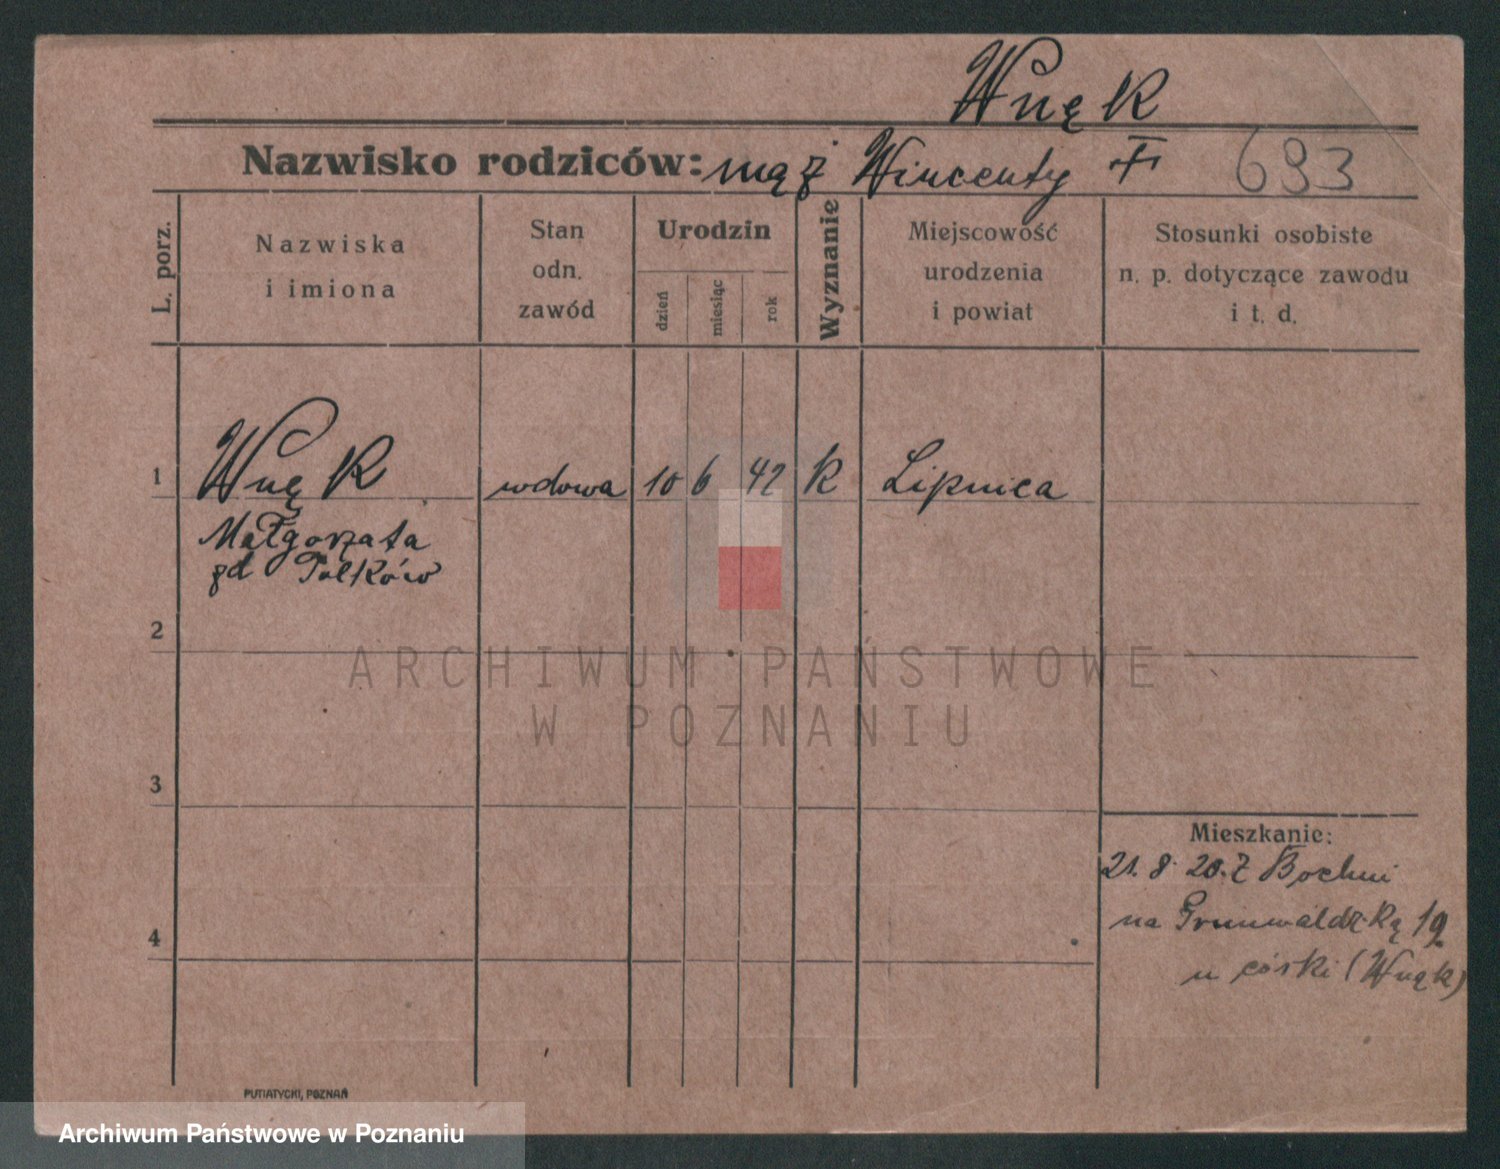 Wnęk
Nazwisko rodziców: mąż Wincenty † 693
L. porz.
Nazwiska
i imiona
Stan
odn.
zawód
Urodzin
dzień
miesiąc
rok
Wyznanie
Miejscowość
urodzenia
i powiat
Stosunki osobiste
n. p. dotyczące zawodu
i t. d.
1 Wnęk wdowa 10 6 42 K Lipnica
Małgorzata
zd Polków
2
3
4
Mieszkanie:
21. 8. 20. z Bochni
na Grunwaldzką 19.
u córki (Wnąk)
ARCHIWUM PAŃSTWOWE
W POZNANIU
PUTIATYCKI, POZNAŃ
Archiwum Państwowe w Poznaniu